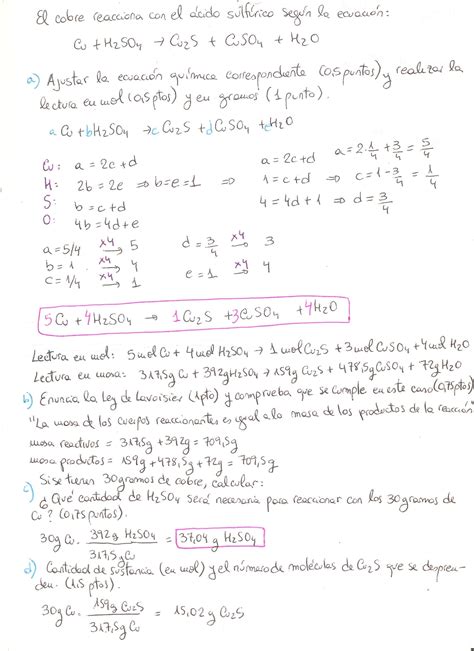 El cobre reacciona con el ácido sulfúrico según la ecuación:
Cu + H2SO4 → Cu2S + CuSO4 + H2O
a) Ajustar la ecuación química correspondiente (0,5 puntos) y realizar la
lectura en mol (0,5 ptos) y en gramos (1 punto).
aCu + bH2SO4 → cCu2S + dCuSO4 + eH2O
Cu: a = 2c+d
H: 2b = 2e ⇒ b=e=1 ⇒
S: b = c+d
O: 4b = 4d+e
a = 2c+d
1 = c+d ⇒ c = 1-3/4 = 1/4
4 = 4d+1 ⇒ d = 3/4
a = 2·1/4 + 3/4 = 5/4
a = 5/4 x4→ 5
b = 1 x4→ 4
c = 1/4 x4→ 1
d = 3/4 x4→ 3
e = 1 x4→ 4
5Cu + 4H2SO4 → 1Cu2S + 3CuSO4 + 4H2O
Lectura en mol: 5mol Cu + 4mol H2SO4 → 1mol Cu2S + 3mol CuSO4 + 4mol H2O
Lectura en masa: 317,5g Cu + 392g H2SO4 → 159g Cu2S + 478,5g CuSO4 + 72g H2O
b) Enuncia la Ley de Lavoisier (1pto) y comprueba que se cumple en este caso (0,75ptos)
"La masa de los cuerpos reaccionantes es igual a la masa de los productos de la reacción"
masa reactivos = 317,5g + 392g = 709,5g
masa productos = 159g + 478,5g + 72g = 709,5g
c) Si se tienen 30 gramos de cobre, calcular:
¿Qué cantidad de H2SO4 será necesaria para reaccionar con los 30 gramos de
Cu? (0,75 puntos).
30g Cu · 392g H2SO4 / 317,5g Cu = 37,04 g H2SO4
d) Cantidad de sustancia (en mol) y el número de moléculas de Cu2S que se despren-
den. (1,5 ptos).
30g Cu · 159g Cu2S / 317,5g Cu = 15,02g Cu2S